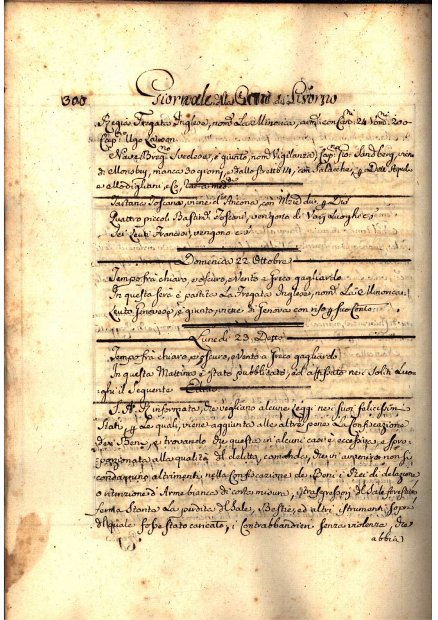 300 Giornale di Livorno
Regia Fregata Inglese, nomta La Minorica, con Cano. 24 200
Cap.o Ugo
Nave Svedese, è quivi, nomta Vigilanza, Cap.o Gio: Sandberg, viene
di manca 30 giorni, e dallo stretto 14, con Salacche, p
e Modigliani, e C.
Tartana Toscana, viene d'Ancona, con p Dio
Quattro piccoli Bastimti Toscani, vengono da Luoghi
Sei Leuti Francesi, vengono
Domenica 22 Ottobre
Tempo fra chiaro, e oscuro, e Vento a Greco gagliardo
In questa sera è partita La Fregata Inglese, nomta La Minorica
Leuto Genovese, è giunto, viene di Genova con riso p suo Conto
Lunedì 23 Detto
Tempo fra chiaro, e oscuro, e Vento a Greco gagliardo
In questa Mattina è stato pubblicato, ed affisso nei Soliti Luo-
ghi il Seguente Editto
S. A. R. informata, che vegliano alcune Leggi nei suoi felicissimi
Stati p Le quali, viene aggiunta alle altre pene La Confiscazione
dei Beni, e trovando che questa in alcuni casi è eccessiva, e spro-
porzionata alla qualità del delitto, comanda, che in avvenire non si
condannino altrimenti nella Confiscazione de Beni i Rei di delazione
o ritenzione d'Arme bianca di corta misura, trasgressori del Sale forestiero
ferma stante La perdita del Sale, Bestie, ed altri strumenti sopra
del quale fosse stato caricato, i Contrabbandieri senza violenza, che
abbia